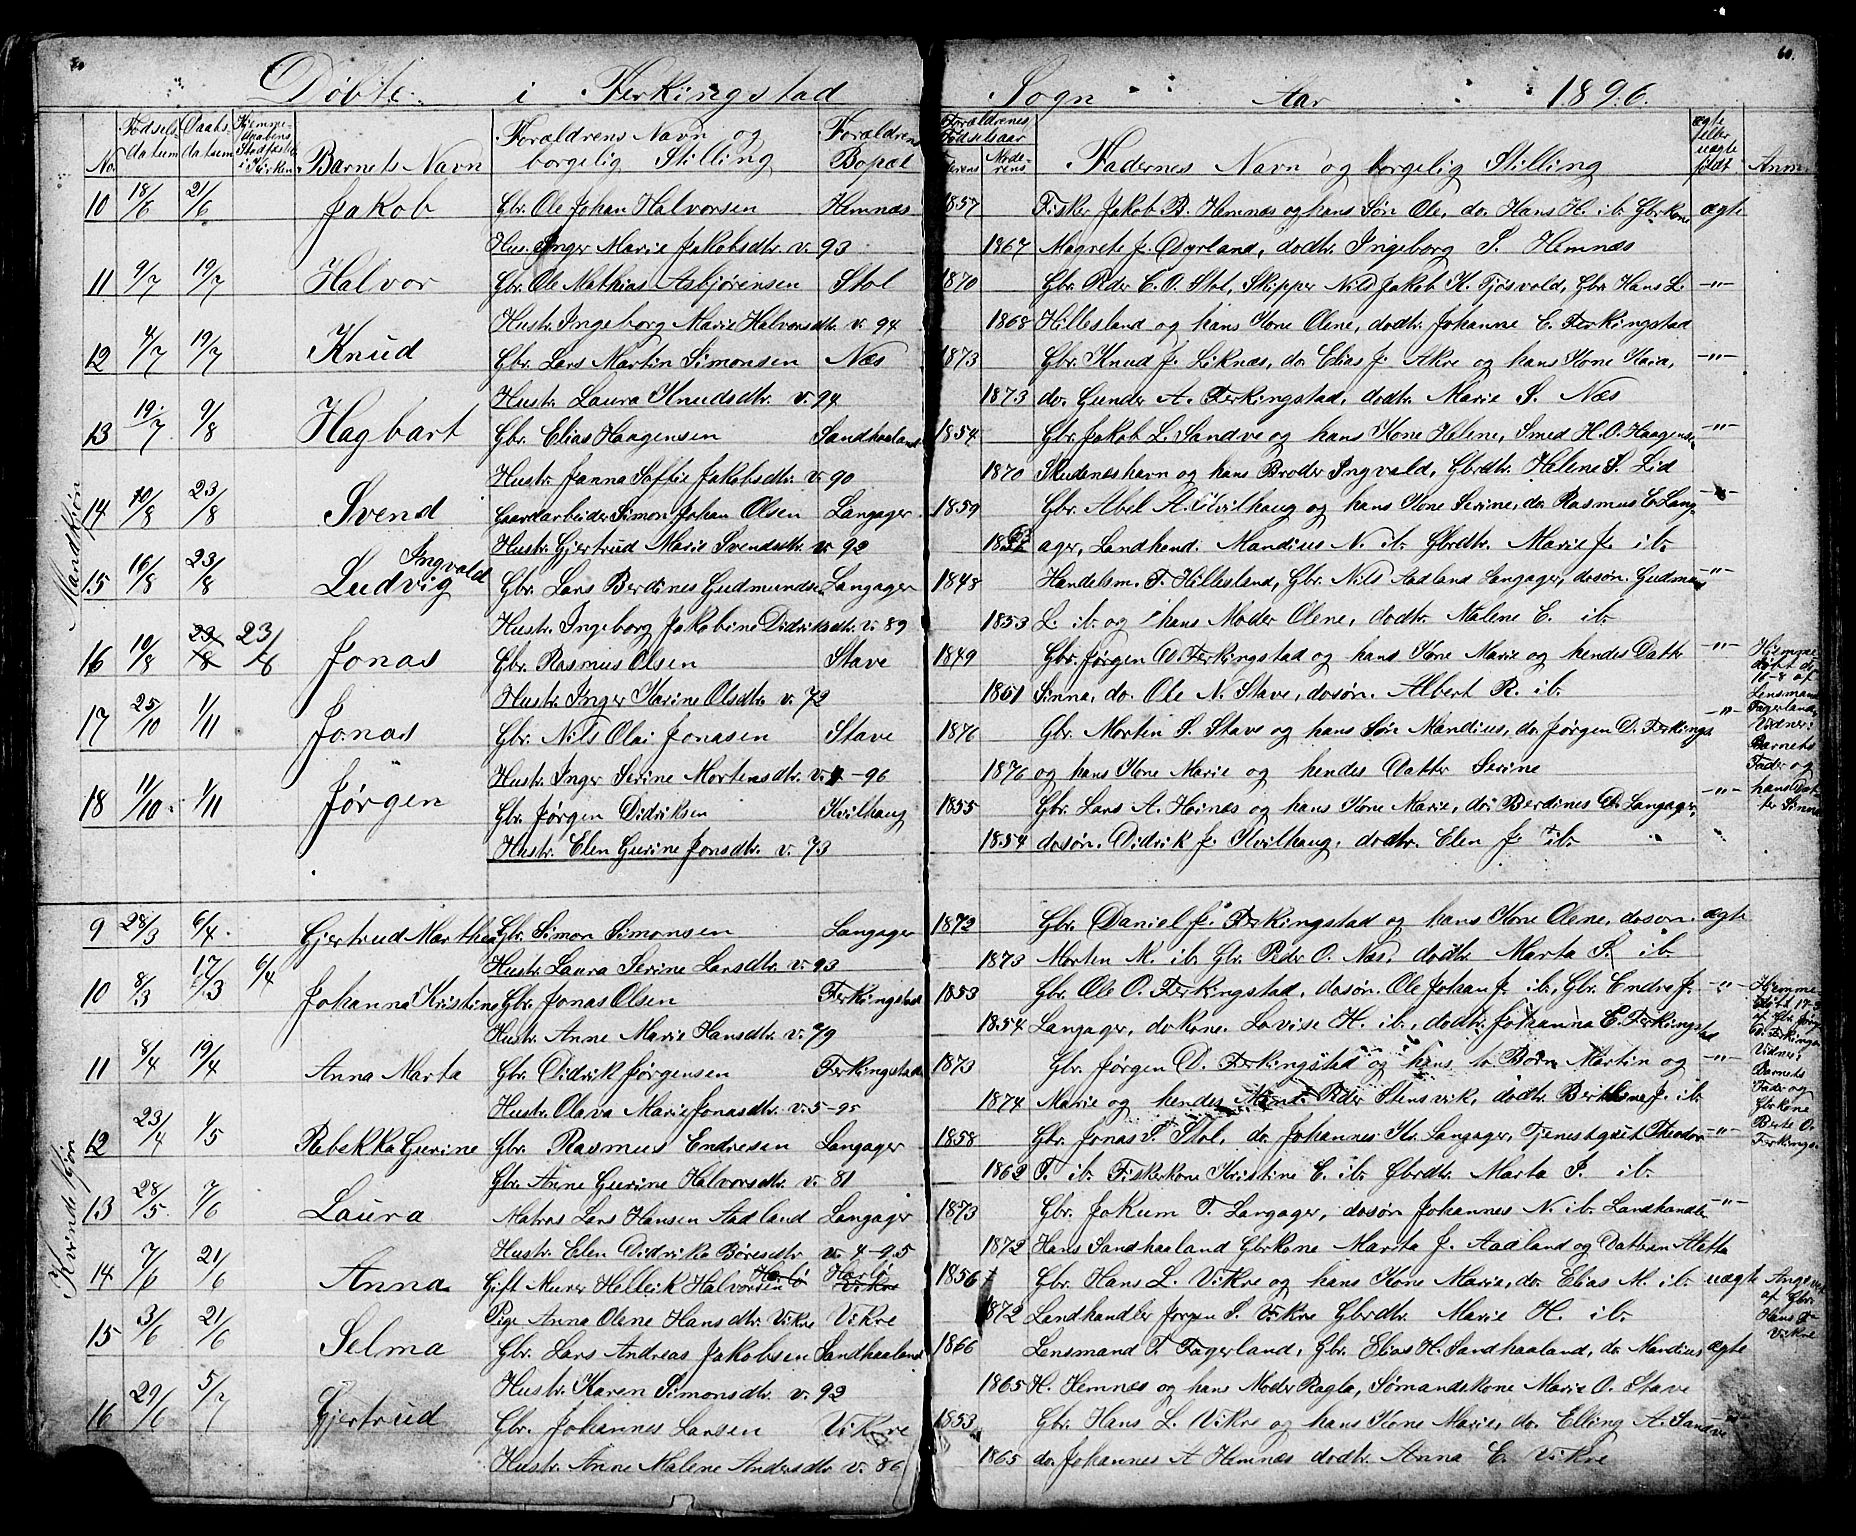 Døbte i Ferkingstad Sogn Aar 1896.
60.
No. Fødsels datum Daabs datum Hjemmedaabens Stadfæstelse i Kirken Barnets Navn Forældrenes Navn og borgelig Stilling Forældrenes Bopæl Forældrenes Fødselsaar Faderens Moderens Faddernes Navn og borgelig Stilling ægte eller uægte født Anm.
Mandkjøn
10 18/6 21/6 Jakob Gbr. Ole Johan Halvorsen Hemnæs 1857 Fisker Jakob B. Hemnæs og hans Søn Ole, do. Hans H. ib. Gbrkone ægte
Hus. Inger Marie Jakobsdtr. v. 93 1867 Magrete J. Dyrland, dodtr. Ingeborg S. Hemnæs
11 9/7 19/7 Halvor Gbr. Ole Mathias Asbjørensen Stol 1870 Gbr. Peder C. O. Stol, Skipper Nils Jakob K. Tjosvold, Gbr. Hans L. -"-
Hustr. Ingeborg Marie Halvorsdtr. v. 94 1868 Hillesland og hans Kone Olene, dodtr. Johanne C. Ferkingstad
12 4/7 19/7 Knud Gbr. Lars Martin Simonsen Næs 1873 Gbr. Knud J. Liknæs, do. Elias J. Akre og hans Kone Kaia, -"-
Hustr. Laura Knudsdtr. v. 94 1873 do. Gunder A. Ferkingstad, dodtr. Marie S. Næs
13 19/7 9/8 Hagbart Gbr. Elias Haagensen Sandhaaland 1854 Gbr. Jakob L. Sandve og hans Kone Helene, Smed H. O. Haagens. -"-
Hustr. Janna Soffie Jakobsdtr. v. 90 1870 Skudeneshavn og hans Broder Ingvald, Gbrdtr. Helene S. Lid
14 10/8 23/8 Svend Gaardarbeider Simon Johan Olsen Langager 1859 Gbr. Abel A. Kvilhaug og hans Kone Serine, do. Rasmus E. Lang- -"-
Hustr. Gjertrud Marie Svendsdtr. v. 92 ager, Landhand. Mandius N. ib. Gbrdtr. Marie J. ib.
15 16/8 23/8 Ludvig Ingvald Gbr. Lars Berdines Gudmundsen Langager 1848 Handelsm. T. Hillesland, Gbr. Nils Aadland Langager, dosøn. Gudmund -"-
Hustr. Ingeborg Jakobine Didriksdtr. v. 89 1853 L. ib. og hans Moder Olene, dodtr. Malene E. ib.
16 10/8 23/8 23/8 Jonas Gbr. Rasmus Olsen Stave 1849 Gbr. Jørgen D. Ferkingstad og hans Kone Marie og hendes Datte -"- Hjemmedøbt d. 16-8 af Lensmand Fagerland, Vidner: Barnets Fader og hans
Hustr. Inger Karine Olsdtr. v. 72 1851 Sinna, do. Ole N. Stave, dosøn. Albert R. ib.
17 25/10 1/11 Jonas Gbr. Nils Olai Jonasen Stave 1876 Gbr. Morten S. Stave og hans Søn Mandius, do. Jørgen D. Ferkings -"-
Hustr. Inger Serine Mortensdtr. v. 4-96 1876 og hans Kone Marie og hendes Datter Serine
18 11/10 1/11 Jørgen Gbr. Jørgen Didriksen Kvilhaug 1855 Gbr. Lars A. Hoinæs og hans Kone Marie, do. Berdines D. Langager, -"-
Hustr. Elen Gurine Jonsdtr. v. 73 1854 dosøn. Didrik J. Kvilhaug, dodtr. Elen J. ib.
Kvindekjøn
9 28/3 6/4 Gjertrud Marthea Gbr. Simon Simonsen Langager 1872 Gbr. Daniel J. Ferkingstad og hans Kone Olene, dosøn. ægte
Hustr. Laura Serine Larsdtr. v. 93 1873 Morten M. ib. Gbr. Peder O. Næs, dodtr. Marta S. ib.
10 8/3 17/3 6/4 Johanna Kristine Gbr. Jonas Olsen Ferkingstad 1853 Gbr. Ole O. Ferkingstad, dosøn. Ole Johan J. ib., Gbr. Endre J. -"- Hjemmedøbt 17-3 af Gbr. Jørgen Ferkings. Vidner: Barnets Fader og Gbrkone Berte O. Ferkings.
Hustr. Anne Marie Hansdtr. v. 79 1854 Langager, dokone. Lovise H. ib., dodtr. Johanna E. Ferkingstad
11 8/4 19/4 Anna Marta Gbr. Didrik Jørgensen Ferkingstad 1873 Gbr. Jørgen D. Ferkingstad og hans to Børn Martin og -"-
Hustr. Olava Marie Jonasdtr. v. 5-95 1874 Marie og hendes Peder Stensvik, dodtr. Berthine J. ib.
12 23/4 1/5 Rebekka Gurine Gbr. Rasmus Endresen Langager 1858 Gbr. Jonas T. Stol, do. Johannes Kr. Langager, Tjenestgut Theodor -"-
Gbr. Anne Gurine Halvorsdtr. v. 81 1862 T. ib. Fiskerkone Kristine E. ib. Gbrdtr. Marta S. ib.
13 28/5 7/6 Laura Matros Lars Hansen Aadland Langager 1873 Gbr. Jokum T. Langager, dosøn Johannes N. ib. Landhandle -"-
Hustr. Elen Didrika Børesdtr. v. 4-95 1872 Hans Sandhaaland Gbrkone Marita J. Aadland og Datteren Aletta
14 7/6 21/6 Anna Gift Murer Hellvik Halvorsen Havlø Havlø Vikre 1856 Gbr. Hans L. Vikre og hans Kone Marie, do. Elias M. ib. uægte Angivet af Gbr. Hans L. Vikre
Pige Anna Olene Hansdtr. Vikre Vikre 1872 Landhandler Jørgen S. Vikre Gbrdtr. Marie H. ib.
15 3/6 21/6 Selma Gbr. Lars Andreas Jakobsen Sandhaaland 1866 Lensmand T. Fagerland, Gbr. Elias H. Sandhaaland, do. Mandius ægte
Hustr. Karen Simonsdtr. v. 92 1865 H. Hemnæs og hans Moder Ragla, Sømandskone Marie O. Stave
16 29/6 5/7 Gjertrud Gbr. Johannes Larsen Vikre 1853 Gbr. Hans L. Vikre og hans Kone Marie, do. Elling A. Sandve
Hustr. Anne Malene Andersdtr. v. 86 1865 do. Johannes A. Hemnæs dodtr. Anna E. Vikre